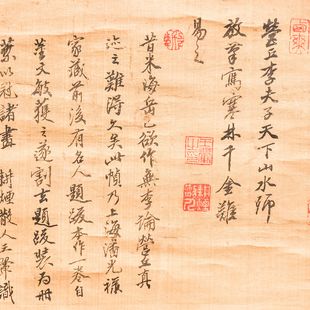 營丘李夫子天下山水師
放筆寫寒林千金難
易之
昔米海岳已欲作無李論營丘真
迹之難得久矣此幀乃上海潘光祿
家藏前後有名人題跋本作一卷自
董文敏獲之遂割去題跋裝為冊
蒙以冠諸畫 耕煙散人王翬識